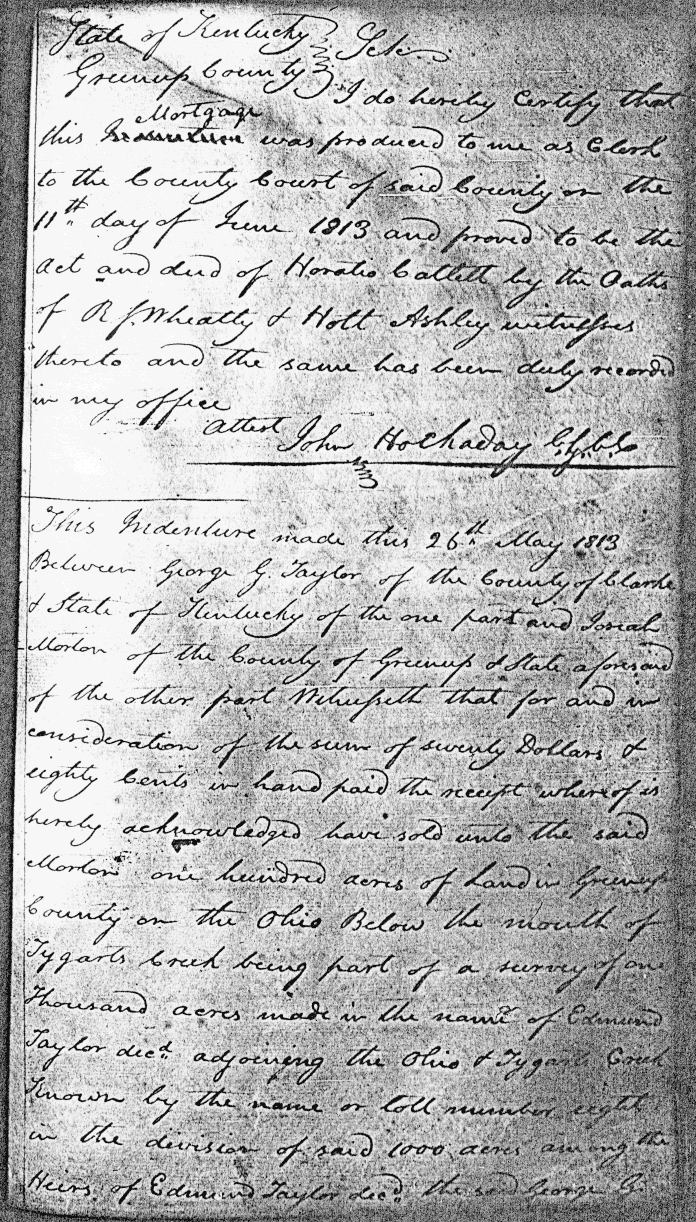 State of Kentucky } Sct
Greenup County } I do hereby Certify that
Mortgage
this was produced to me as Clerk
to the County Court of said County on the
11th day of June 1813 and proved to be the
act and deed of Horatio Catlett by the Oaths
of R J Wheatly & Hott Ashley witnesses
thereto and the same has been duly recorded
in my office
attest John Hockaday C.G.C.C
This Indenture made this 26th May 1813
Between George G. Taylor of the County of Clarke
& State of Kentucky of the one part and Josiah
Morton of the County of Greenup & State aforesaid
of the other part Witnesseth that for and in
consideration of the sum of seventy Dollars &
eighty Cents in hand paid the receipt whereof is
hereby acknowledged have sold unto the said
Morton one hundred acres of Land in Greenup
County on the Ohio Below the mouth of
Tygarts Creek being part of a survey of one
Thousand acres made in the name of Edmund
Taylor decd adjoining the Ohio & Tygarts Creek
Known by the name or lott number eight
in the division of said 1000 acres among the
Heirs of Edmund Taylor decd the said George G